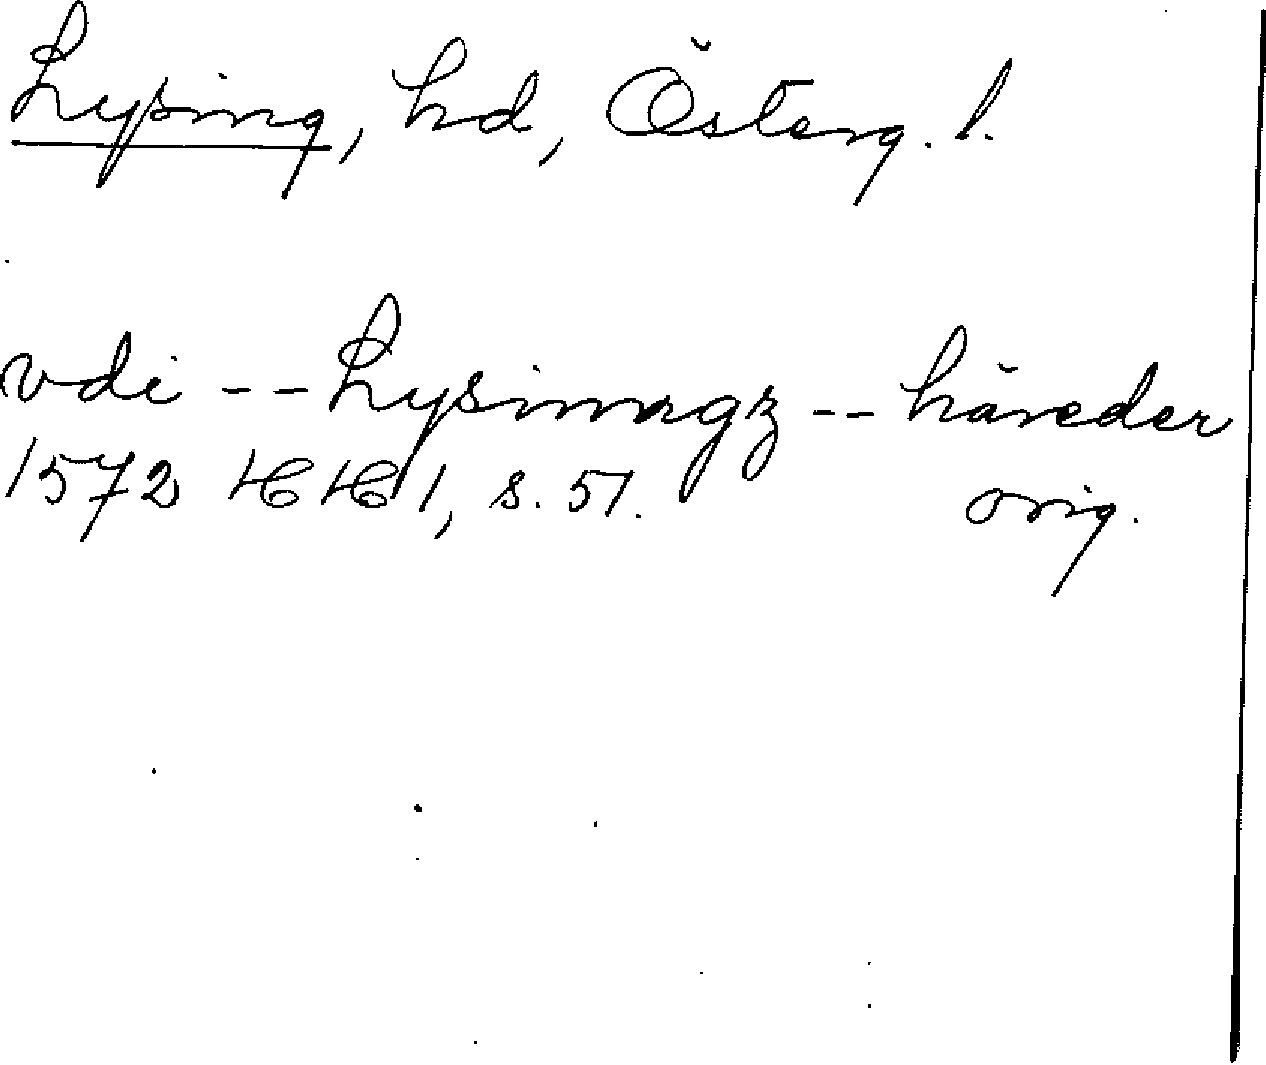 Lysing, hd, Österg. l.
vdi -- Lysinngz -- häreder
1572 HH 1, s. 51. orig.